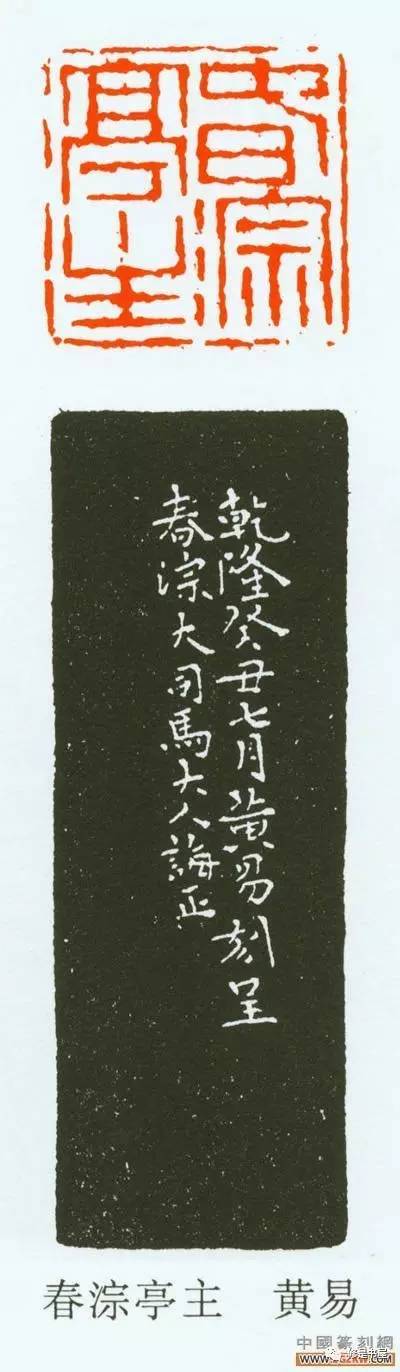 春淙
亭主
乾隆癸丑七月黄易刻呈
春淙大司馬大人誨正
春淙亭主 黄易
中國篆刻網